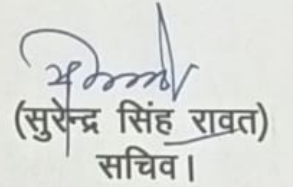 (सुरेन्द्र सिंह रावत)
सचिव।